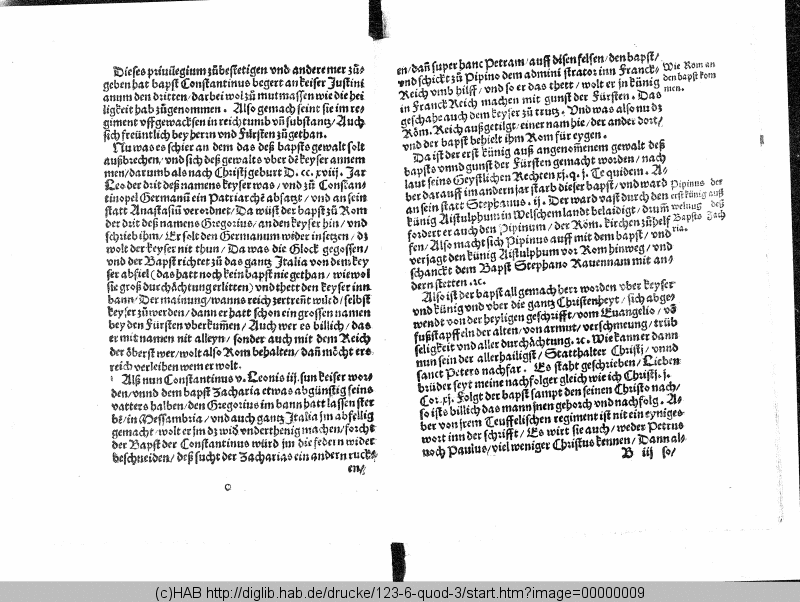 Dieses priuilegium zůbestetigen vnd andere mer zů-
geben hat bapst Constantinus begert an keiser Justini
anum den dritten/ darbei wol zů mutmassen wie die hei
ligkeit hab zůgenommen. Also gemach seint sie im re-
giment vffgewachsen in reichtumb vñ substantz/ Auch
sich freüntlich bey herrn vnd Fürsten zůgethan.
Nu was es schier an dem das deß bapsts gewalt solt
außbrechen/ vnd sich deß gewalts vber dē keyser annem
men/ darumb als nach Christi geburt D. cc. xviij. Jar
Leo der drit deß namens keyser was/ vnd zů Constan-
tinopel Germanū ein Patriarchē absatzt/ vnd an sein
statt Anastasiū verordnet/ Da wüst der bapst zů Rom
der drit deß namens Gregorius/ an den keyser hin/ vnd
schrieb ihm/ Er solt den Germanum weder insetzen/ dz
wolt der keyser nit thun/ Da was die Glock gegossen/
vnd der Bapst richtet zů das gantz Italia von dem key
ser abfiel (das hatt noch kein bapst nie gethan/ wiewol
sie groß durchächtung erlitten) vnd thett den keyser inn
bann/ Der mainung/ wanns reich zertrent würd/ selbst
keyser zů werden/ dann er hatt schon ein grossen namen
bey den Fürsten vberkumen/ Auch wer es billich/ das
er mit namen nit alleyn/ sonder auch mit dem Reich
der öberst wer/ wolt also Rom behalten/ dañ möcht ers
reich verleihen wem er wolt.
Alß nun Constantinus v. Leonis iij. sun keiser wor
den/ vnnd dem bapst Zacharia etwas abgünstig seins
vatters halben/ den Gregorius im bann hatt lassen ster
bē/ in Messambria/ vnd auch gantz Italia jm abfellig
gemacht/ wolt er jm dz wid vnderthenig machen/ forcht
der Bapst der Constantinus würd jm die federn wider
beschneiden/ deß sucht der Zacharias ein andern rück-
en/
en/ dañ super hanc Petram/ auff disen felsen/ den bapst/
vnd schickt zů Pipino dem administrator inn Franck-
Reich vmb hilff/ vnd so er das thett/ wolt er jn künig
in Franck Reich machen mit gunst der Fürsten. Das
geschahe auch dem keyser zů trutz. Vnd was also nu dz
Röm. Reich außgetilgt/ einer nam hie/ der ander dort/
vnd der bapst behielt ihm Rom für eygen.
Wie Rom an
den bapst kom
men.
Da ist der erst künig auß angenomenem gewalt deß
bapsts vnnd gunst der Fürsten gemacht worden/ nach
laut seins Geystlichen Rechten xj. q. j. Te quidem. A-
ber darauff im andern jar starb dieser bapst/ vnd ward
an sein statt Stephanus. ij. Der ward vast durch den
künig Aistulphum in Welschem landt belaidigt/ drum̄
fordert er auch den Pipinum/ der Röm. kirchen zů helf
fen/ Also macht sich Pipinus auff mit dem bapst/ vnd
verjagt den künig Aistulphum vor Rom hinweg/ vnd
schanckt dem Bapst Stephano Rauennam mit an-
dern stetten. ꝛc.
Pipinus der
erst künig auß
deß
Bapsts Zach
ria.
Also ist der bapst allgemach herr worden vber keyser
vnd künig vnd vber die gantz Christenheyt/ sich abge-
wendt von der heyligen geschrifft/ vom Euangelio/ vō
fußstapffeln der alten/ von armut/ verschmeung/ trüb
seligkeit vnd aller durchächtung. ꝛc. Wie kann er dann
nun sein der allerhailigst/ Statthalter Christi/ vnnd
sanct Peters nachfar. Es staht geschrieben/ Lieben
brüder seyt meine nachfolger gleich wie ich Christi. j.
Cor. xj. Folgt der bapst sampt den seinen Christo nach/
so ists billich das mans jnen gehorch vnd nachfolg. A-
ber von jrem Teuffelischen regiment ist nit ein eyniges
wort inn der schrifft/ Es wirt sie auch/ weder Petrus
noch Paulus/ viel weniger Christus kennen/ Dann al-
B iij so/
(c)HAB http://diglib.hab.de/drucke/123-6-quod-3/start.htm?image=00000009